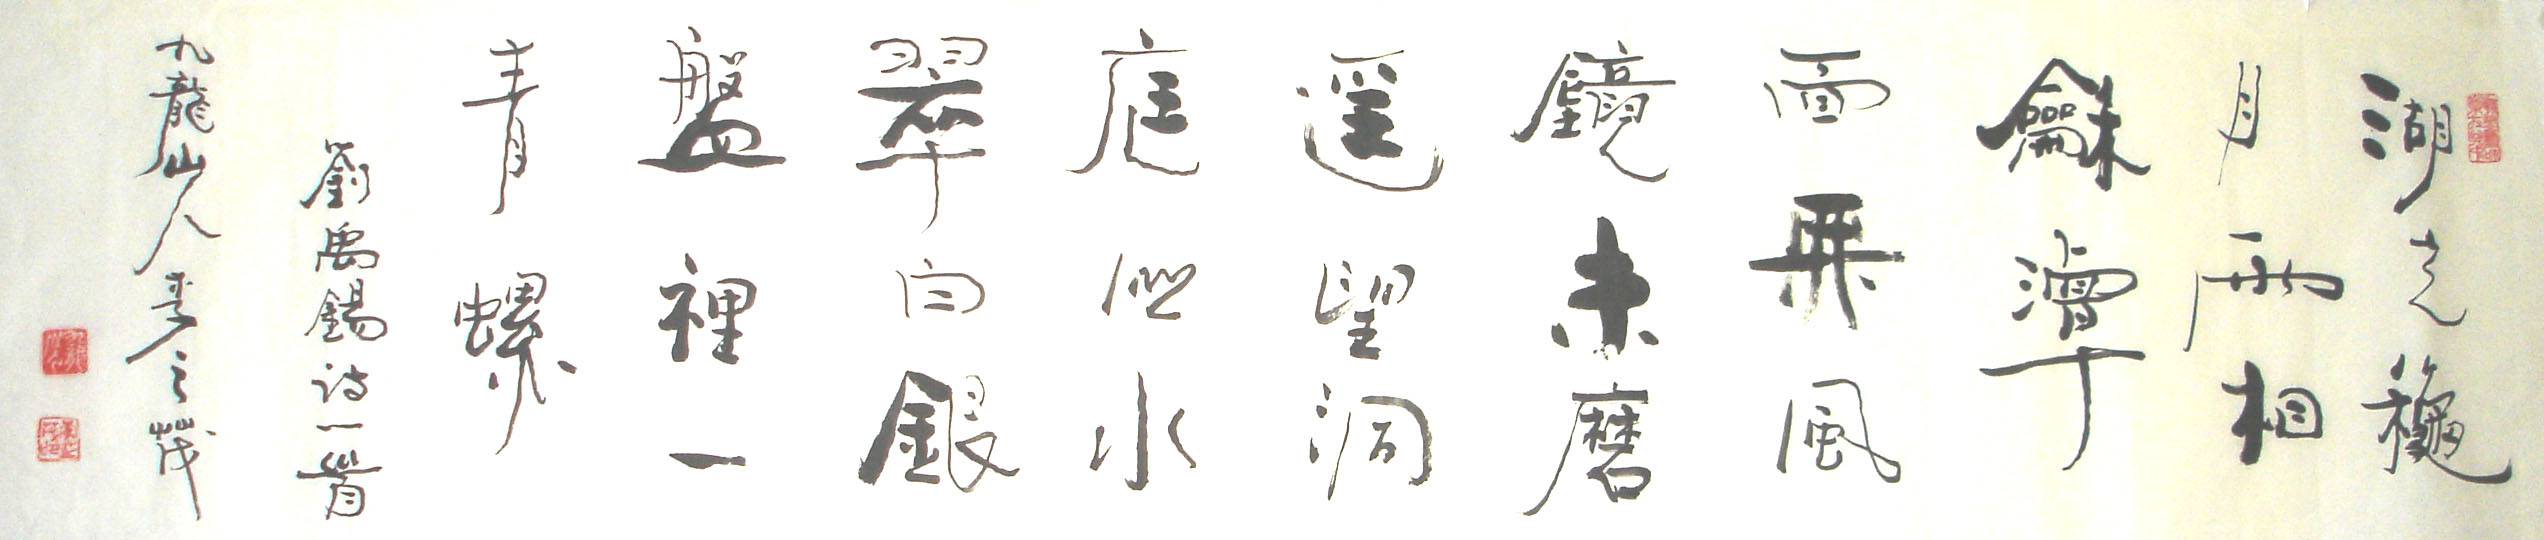 湖光龝
月兩相
龢潭
面無風
鏡未磨
遥望洞
庭水
翠白銀
盤裡一
青螺
劉禹錫詩一首
九龍山人之茂